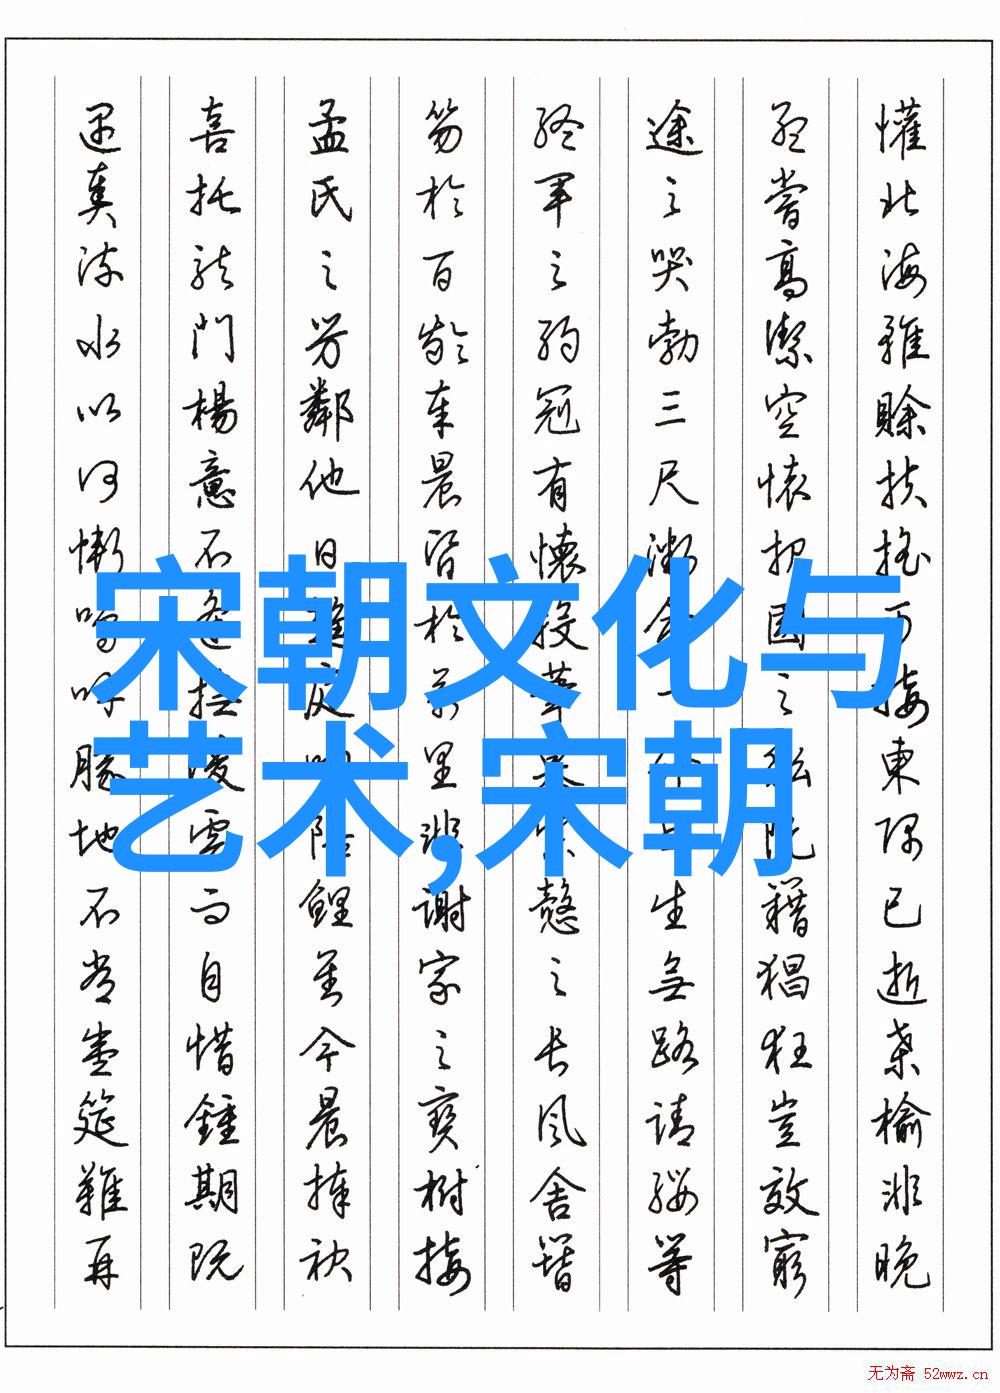 懽北海雖賖扶搖可接東隅已逝桑榆非晚
孟嘗高潔空懷报國之阮籍猖狂豈效窮
途之哭勃三尺微命一介生無路請纓等
終軍之弱冠有懷投筆慕宗慤之长風舍簪
笏於百齡奉晨昏於万里非謝家之寶樹接
孟氏之芳鄰他日趨庭叨陪鯉对今晨捧袂
喜托龍門楊意不逢撫凌雲而自惜鍾期既
遇奏流水以何慚嗚呼勝地不常盛筵難再
宋朝文化与
艺术,宋朝
无为斋 52wwz.cn